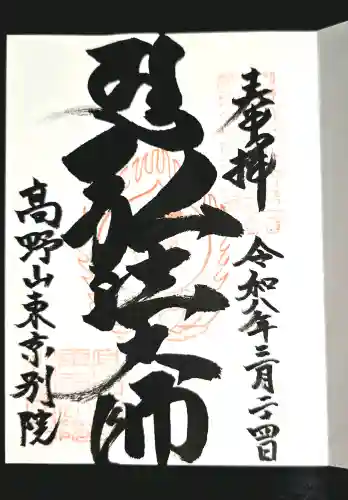 奉拝
令和八年三月二十四日
遍照弘法大師
高野山東京別院